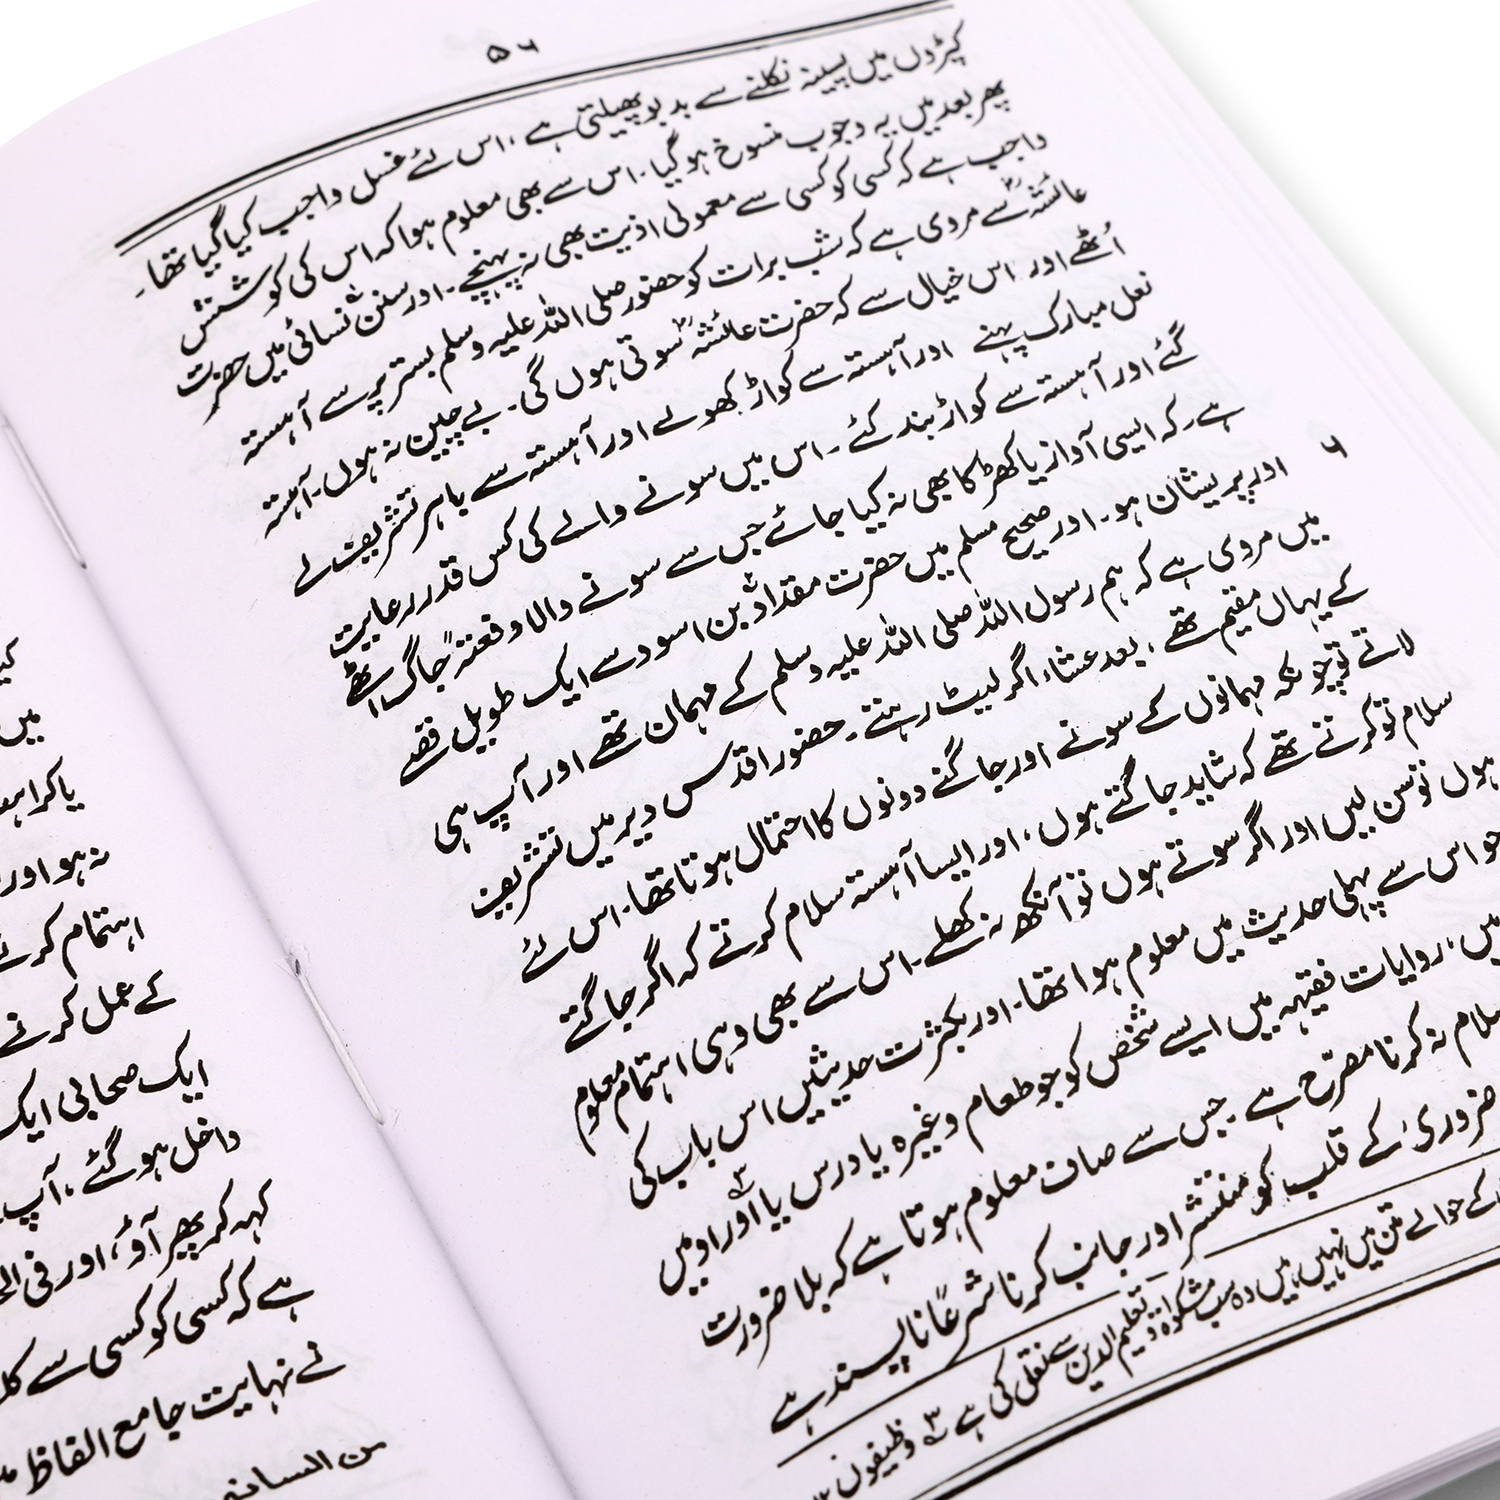 ۵۶
کپڑوں میں پسینہ نکلنے سے بدبو پھیلتی ہے، اس لئے غسل واجب کیا گیا تھا۔
پھر بعد میں یہ وجوب منسوخ ہو گیا۔ اس سے بھی معلوم ہوا کہ اس کی کوشش
واجب ہے کہ کسی کو کسی سے معمولی اذیت بھی نہ پہنچے۔ اور سنن نسائی میں حضرت
عائشہؓ سے مروی ہے کہ شب برات کو حضور صلی اللہ علیہ وسلم بستر پر سے آہستہ
اُٹھے اور اس خیال سے کہ حضرت عائشہؓ سوتی ہوں گی۔ بے چین نہ ہوں۔ آہستہ
نعل مبارک پہنے اور آہستہ سے کواڑ کھولے اور آہستہ سے باہر تشریف لے
گئے اور آہستہ سے کواڑ بند کئے۔ اس میں سونے والے کی کس قدر رعایت
ہے۔ کہ ایسی آواز یا کھڑکا بھی نہ کیا جائے جس سے سونے والا دفعتہً جاگ اٹھے
اور پریشان ہو۔ اور صحیح مسلم میں حضرت مقدادؓ بن اسود سے ایک طویل قصے
میں مروی ہے کہ ہم رسول اللہ صلی اللہ علیہ وسلم کے مہمان تھے اور آپ ہی
کے یہاں مقیم تھے، بعد عشاء اگر لیٹ رہتے۔ حضور اقدس دیر میں تشریف
لاتے تو چونکہ مہمانوں کے سونے اور جاگنے دونوں کا احتمال ہوتا تھا۔ اس لئے
سلام تو کرتے تھے کہ شاید جاگتے ہوں، اور ایسا آہستہ سلام کرتے کہ اگر جاگتے
ہوں تو سن لیں اور اگر سوتے ہوں تو آنکھ نہ کھلے۔ اس سے بھی وہی اہتمام معلوم
جو اس سے پہلی حدیث میں معلوم ہوا تھا۔ اور بکثرت حدیثیں اس باب کی
ہیں، روایات فقیہہ میں ایسے شخص کو جو طعام وغیرہ یا درس یا اوراد میں
سلام نہ کرنا مصرّح ہے۔ جس سے صاف معلوم ہوتا ہے کہ بلا ضرورت
ضروری کے قلب کو منتشر اور جانب کرنا شرعاً ناپسند ہے
کے حوالے متن میں نہیں ہیں وہ سب مشکوٰۃ و تعلیم الدین سے نقل کی ہے وظیفوں
میں
نہ ہو اور
اہتمام کرنے
کے عمل کرنے
ایک صحابی ایک
داخل ہو گئے، آپ
کہہ کر پھر آؤ، اور فی
ہے کہ کسی کو کسی سے
نے نہایت جامع الفاظ